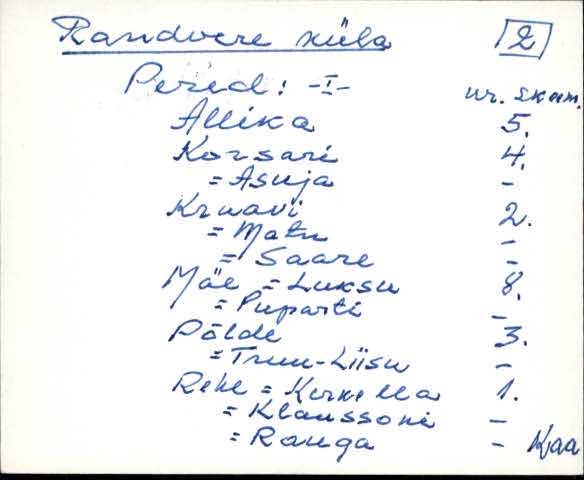 Randvere küla [2]
Pered: -I- nr. skeem.
Allika 5.
Korsari 4.
= Asuja -
Kruavi 2.
= Matu -
= Saare -
Mäe = Luksu 8.
= Puparti -
Põlde 3.
= Truu-Liisu -
Rehe = Kirnella 1.
= Klaussoni -
= Ranga - Kaa